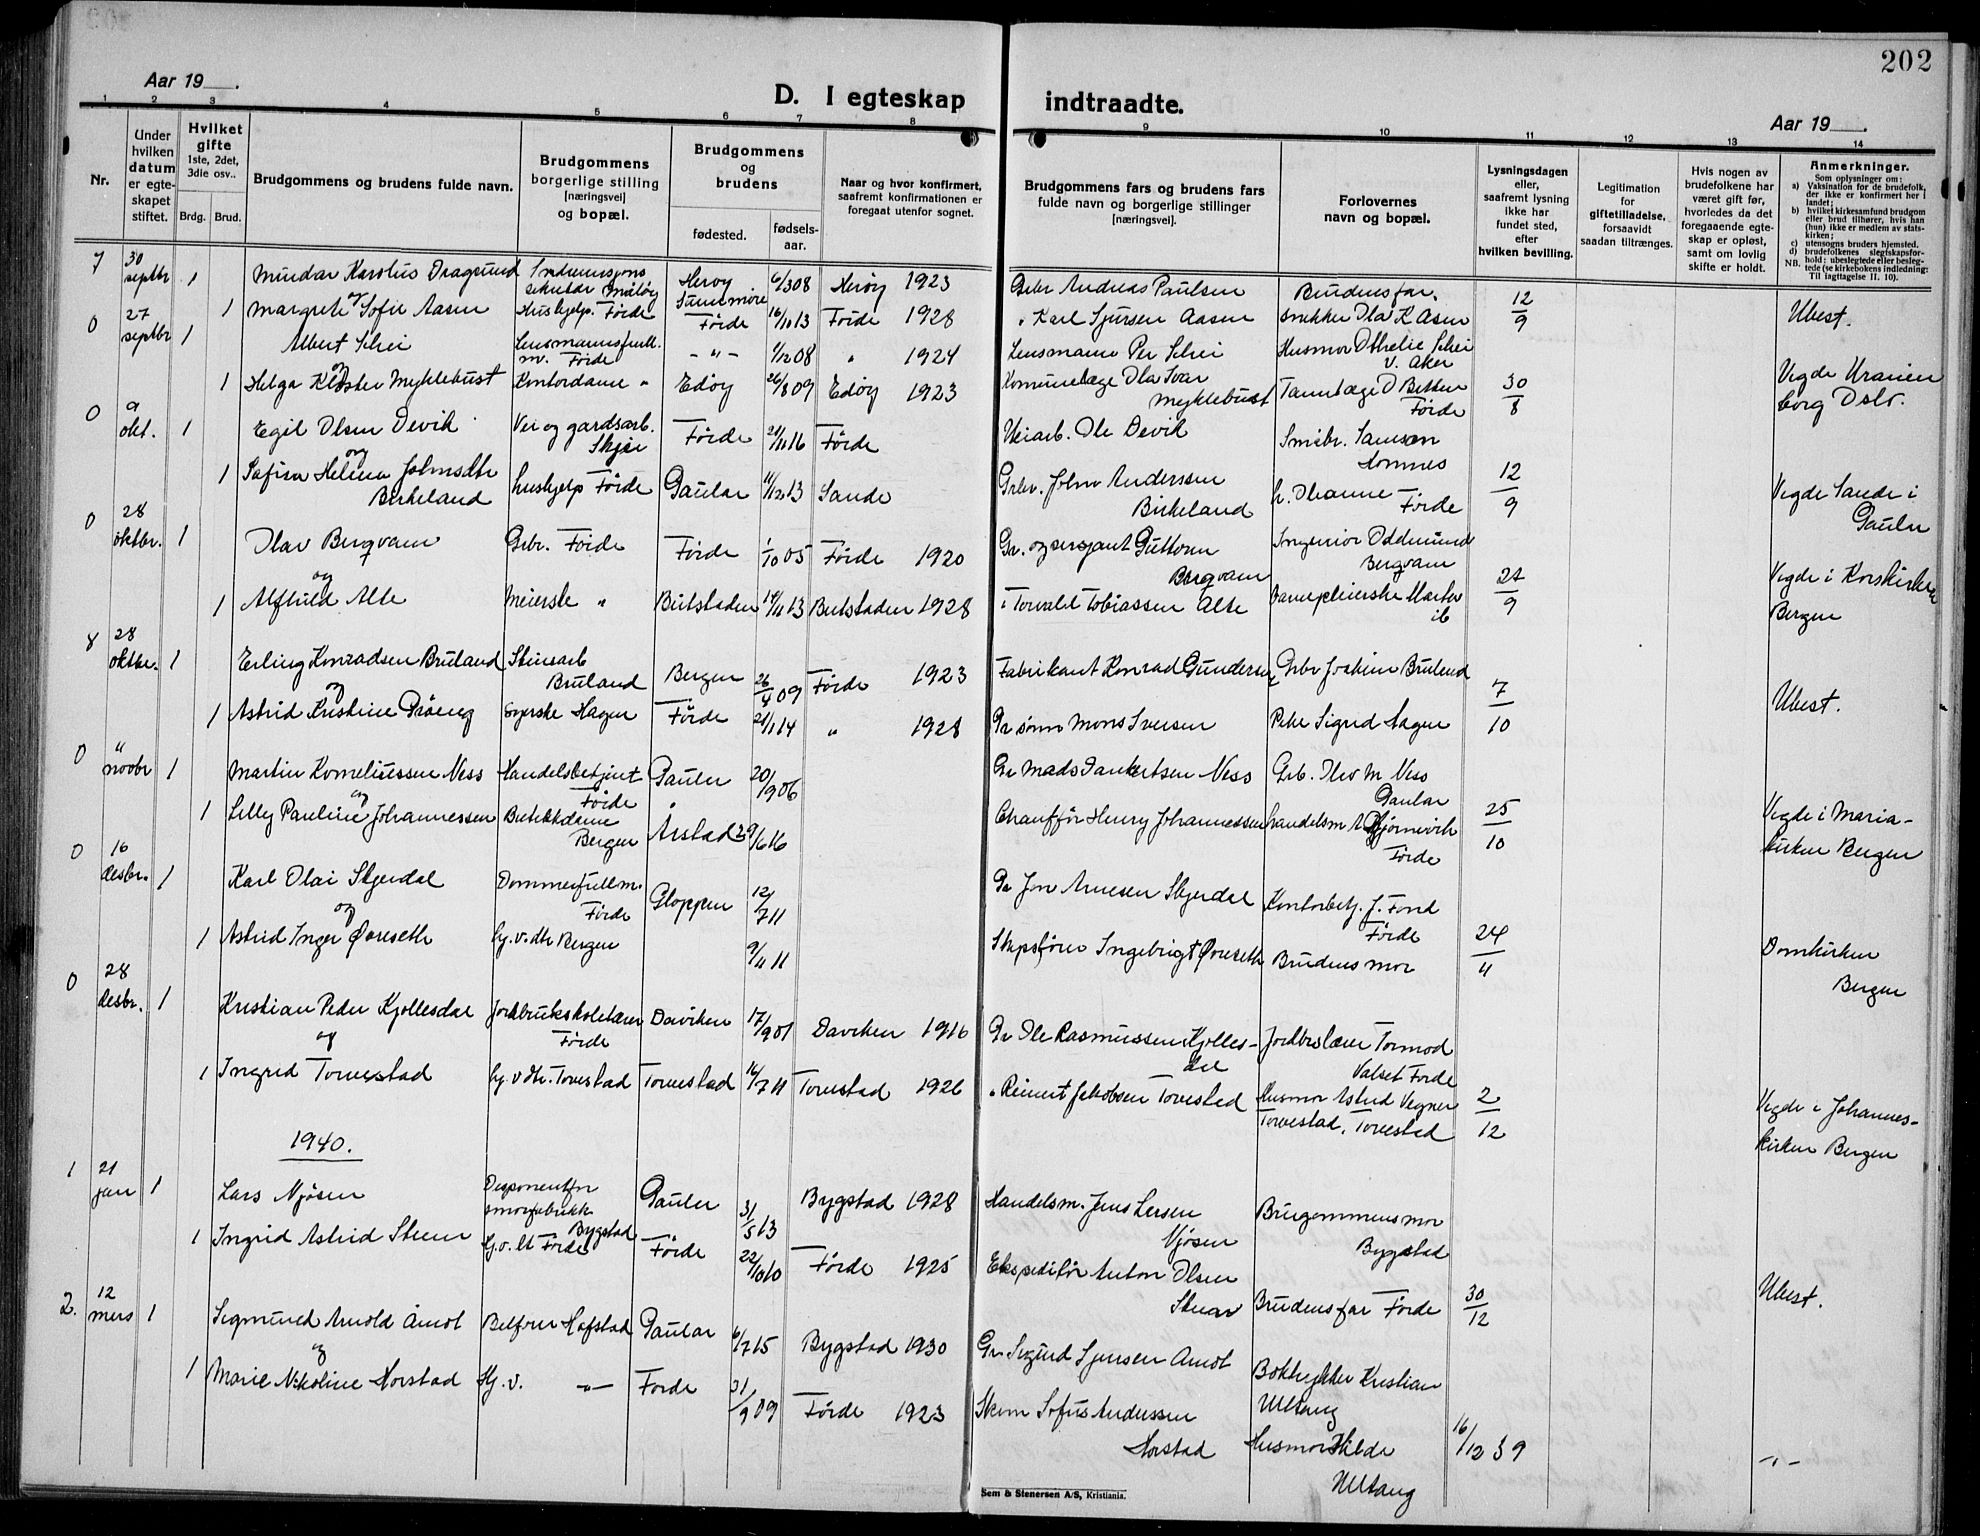 202
Aar 19___.
D. I egteskap indtraadte.
Aar 19___.
1 2 3 4 5 6 7 8 9 10 11 12 13 14
Nr.
Under hvilken datum er egteskapet stiftet.
Hvilket gifte 1ste, 2det, 3die osv..
Brdg. Brud.
Brudgommens og brudens fulde navn.
Brudgommens borgerlige stilling [næringsvei] og bopæl.
Brudgommens og brudens
fødested.
fødselsaar.
Naar og hvor konfirmert, saafremt konfirmationen er foregaat utenfor sognet.
Brudgommens fars og brudens fars fulde navn og borgerlige stillinger [næringsvei].
Forlovernes navn og bopæl.
Lysningsdagen eller, saafremt lysning ikke har fundet sted, efter hvilken bevilling.
Legitimation for giftetilladelse, forsaavidt saadan tiltrænges.
Hvis nogen av brudefolkene har været gift før, hvorledes da det foregaaende egteskap er opløst, samt om lovlig skifte er holdt.
Anmerkninger.
Som oplysninger om:
a) Vaksination for de brudefolk, der ikke er konfirmert her i landet;
b) hvilket kirkesamfund brudgom eller brud tilhører, hvis han (hun) ikke er medlem av statskirken;
c) utensogns bruders hjemsted.
d) brudefolkenes slegtskapsforhold: ubeslegtede eller beslegtede (se kirkebokens indledning: Til iagttagelse II. 10).
NB.
7 30 septbr 1 Karolus Dragsund Herøy 6/3 08 Herøy 1923 Gbr Andreas Paulsen Brudens far. 12/9
og Sunnmøre
1 Margrete Sofie Aasen Hushjelp. Førde Førde 16/10 13 Førde 1928 " Karl Sjursen Aasen snekker Ola K Asen Ubest.
0 27 septbr 1 Albert Schei Lensmannsfullm. Førde - " - 1/12 08 " 1924 Lensmann Per Schei Husmor Othelie Schei V. Aker
og
1 Helga Kloster Myklebust Kontordame " Edøy 26/8 09 Edøy 1923 Komunelæge Ola Ivar Myklebust Tannlæge O Førde 30/8 Vigde Uranienborg Oslo.
0 9 okt. 1 Egil Olsen Devik Vei og gardsarb. Skjei Førde 21/11 16 Førde Veiarb. Ole Devik Smibr. Samson Hornnes
og
1 Helena Johnsdtr Birkeland hushjelp Førde Gaular 11/12 13 Sande Grbr. John Anderssen Birkeland Førde 12/9 Vigde Sande i Gaular
0 28 oktbr. 1 Olav Bergvam Grbr. Førde Førde 1/10 05 Førde 1920 Gr. og sersjant Guttorm Bergvam Ingeniør Oddmund Bergvam
og
1 Alfhild Alte Meierske " Buksladen 14/11 13 1928 " Torvald Tobiassen Alte 24/9 Vigde i Korskirken Bergen
8 28 oktbr. 1 Erling Konradsen Bruland Bruland Bergen 26/4 09 Førde 1923 Fabrikant Konrad Gundersen Grbr Joakim Bruland
og
1 Astrid Kristine Syerske Hagen Førde 21/1 14 " 1928 Gr sønn Mons Iversen Pike Sigrid Hagen 7/10 Ubest.
0 " novbr 1 Martin Korneliussen Ness Handelsbetjent Førde Gauler 20/9 06 Gr Mads Ness Grb. Olav M Ness Gaular
og
1 Lilly Pauline Johannessen Butikkdame Bergen Årstad 29/6 16 Chauffør Henry Johannessen handelsm A Bjørnevik Førde 25/10 Vigde i Mariakirken Bergen
0 16 desbr. 1 Karl Olai Skjerdal Dommerfullm. Førde Gloppen 12/7 11 Gr Jon Arnesen Skjerdal Kontorbetj. J. Fond Førde
og
1 Astrid Inger Øvreseth hj.v. dtr Bergen 9/11 11 Skipsfører Ingebrigt Øvreseth Brudens mor 24/4 Domkirken Bergen
0 28 desbr. 1 Kristian Peder Kjøllesdal Jordbruksskolelærer Førde Daviken 17/9 01 Daviken 1916 Gr Ole Rasmussen Kjøllesdal Jordbrslærer Tormod Valset Førde
og
1 Ingrid Torvestad hj.v. dtr. Torvestad Torvestad 16/7 11 Torvestad 1926 " Reinert Jakobsen Torvestad Husmor Astrid Vegner Torvestad, Torvestad 2/12 Vigde i Johanneskirken Bergen
1940.
1 21 jan 1 Lars Njøsen Disponent for smørfabrikk Bygstad Gauler 31/5 13 Bygstad 1928 Handelsm. Jens Larsen Njøsen Brurgommens mor Bygstad
1 Ingrid Astrid Steen hj.v. dt Førde Førde 22/10 10 Førde 1925 Ekspeditør Anton Olsen Steen Brudens far Førde 30/12 Ubest.
2. 12 mars 1 Sigmund Arnold Åmot Hafstad Gaular 6/7 15 Bygstad 1930 Gr Sigurd Sjursen Åmot Boktrykker Kristian Ulltang
og
1 Marie Nikoline Horstad Hj.v. - " - Førde 31/9 09 Førde 1923 Skom Sofus Anderssen Horstad Husmor Hilde Ulltang 16/12 39 - " -
Sem & Stenersen A/S, Kristiania.